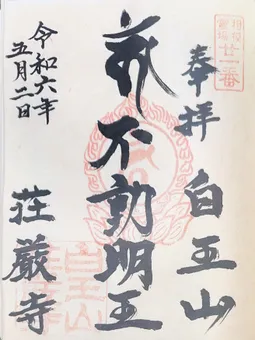 廿一番
奉拝
白王山
不動明王
令和六年
五月二日
荘厳寺